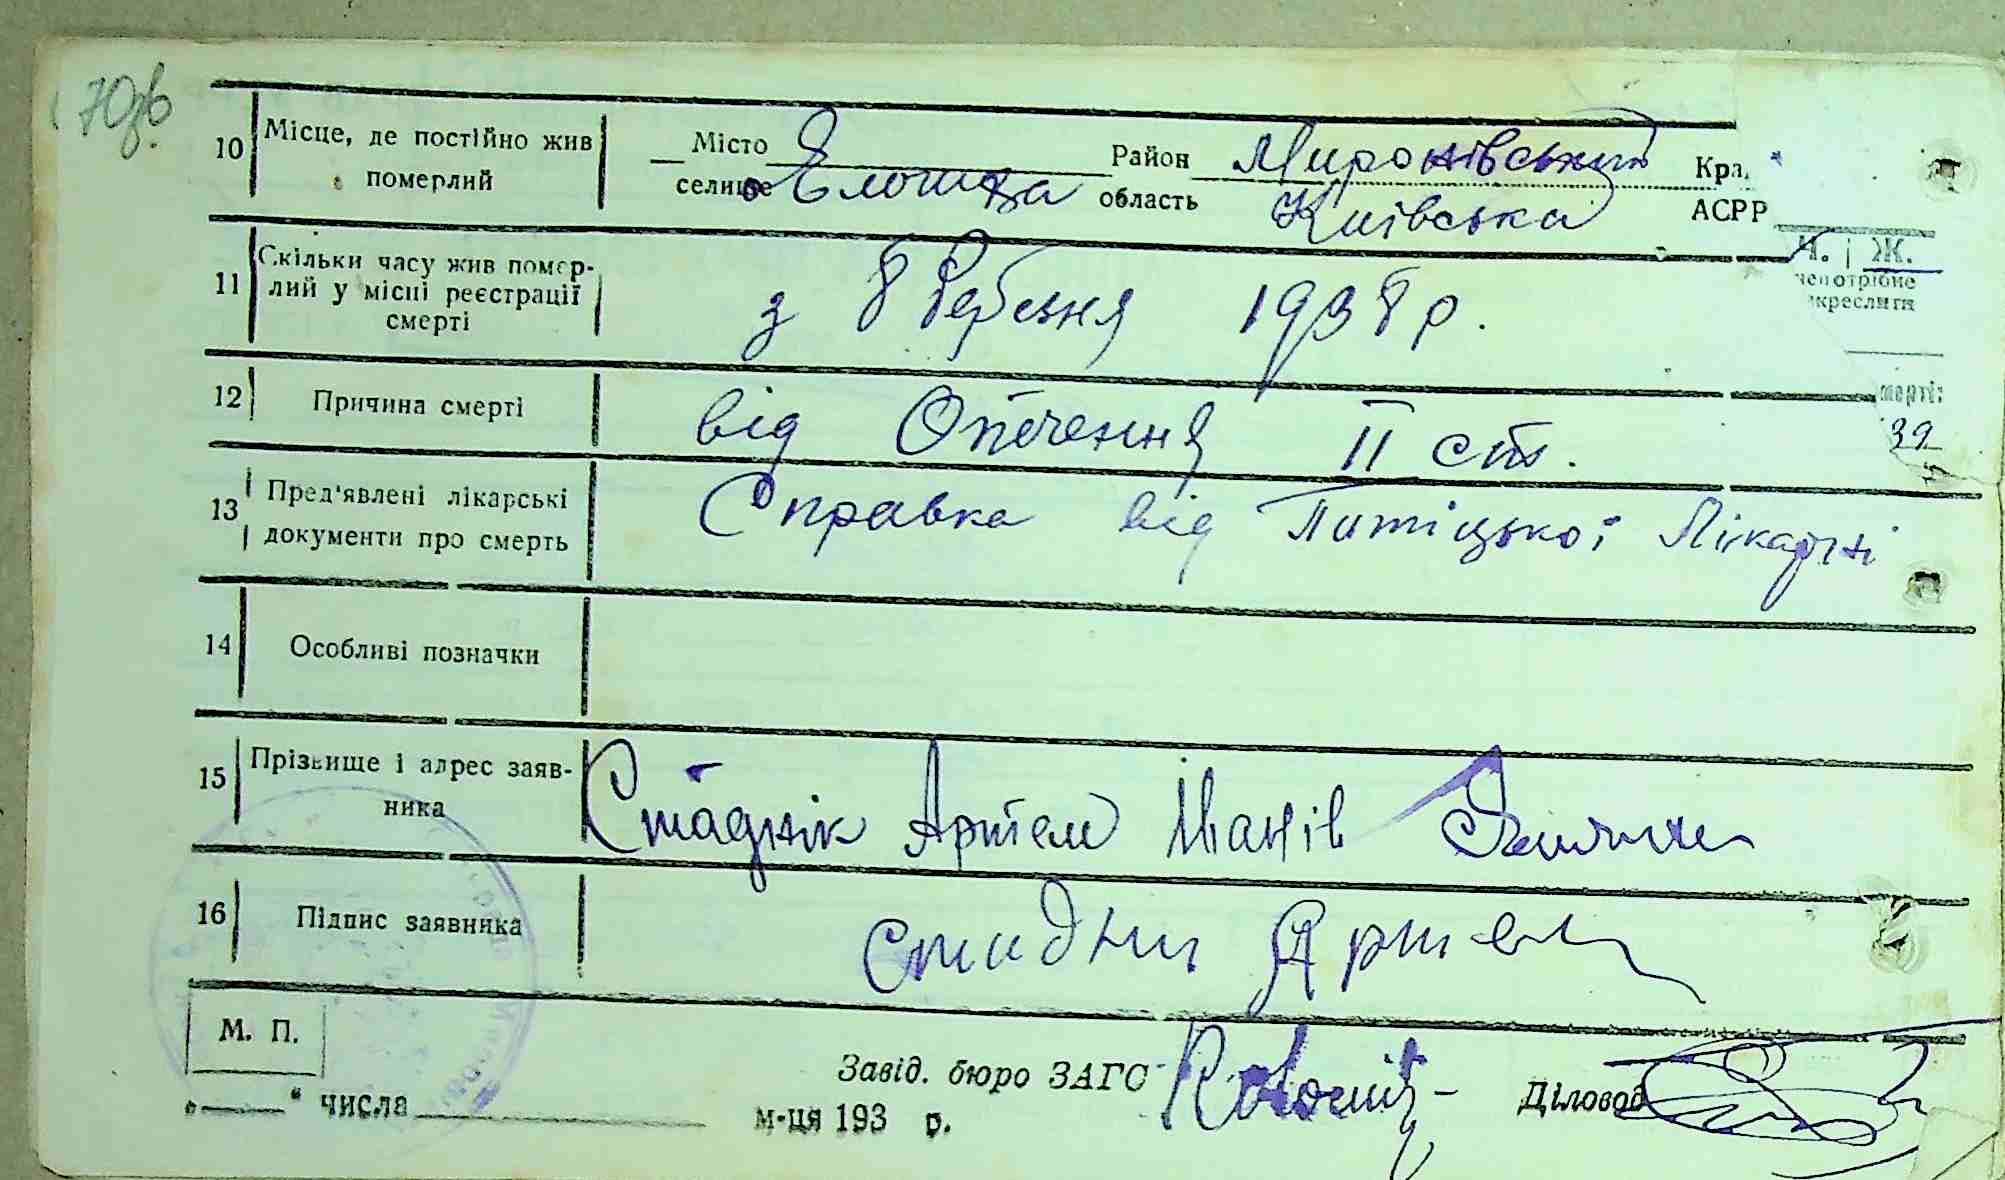 70зв
10 Місце, де постійно жив померлий
Місто Район Миронівський Кра
селище область Київська АСРР
Ч. і Ж.
непотрібне
икреслити
11 Скільки часу жив помер-
лий у місці реєстрації
смерті
з 8 Березня 1938 р.
12 Причина смерті від Опечення II ст.
мерті:
39
13 Пред'явлені лікарські
документи про смерть
Справка від Лікарні
14 Особливі позначки
15 Прізвище і адрес заяв-
ника
Стаднік Артем Іванів
16 Підпис заявника Артем
М. П.
Завід. бюро ЗАГС Діловод
„ “ числа м-ця 193 р.